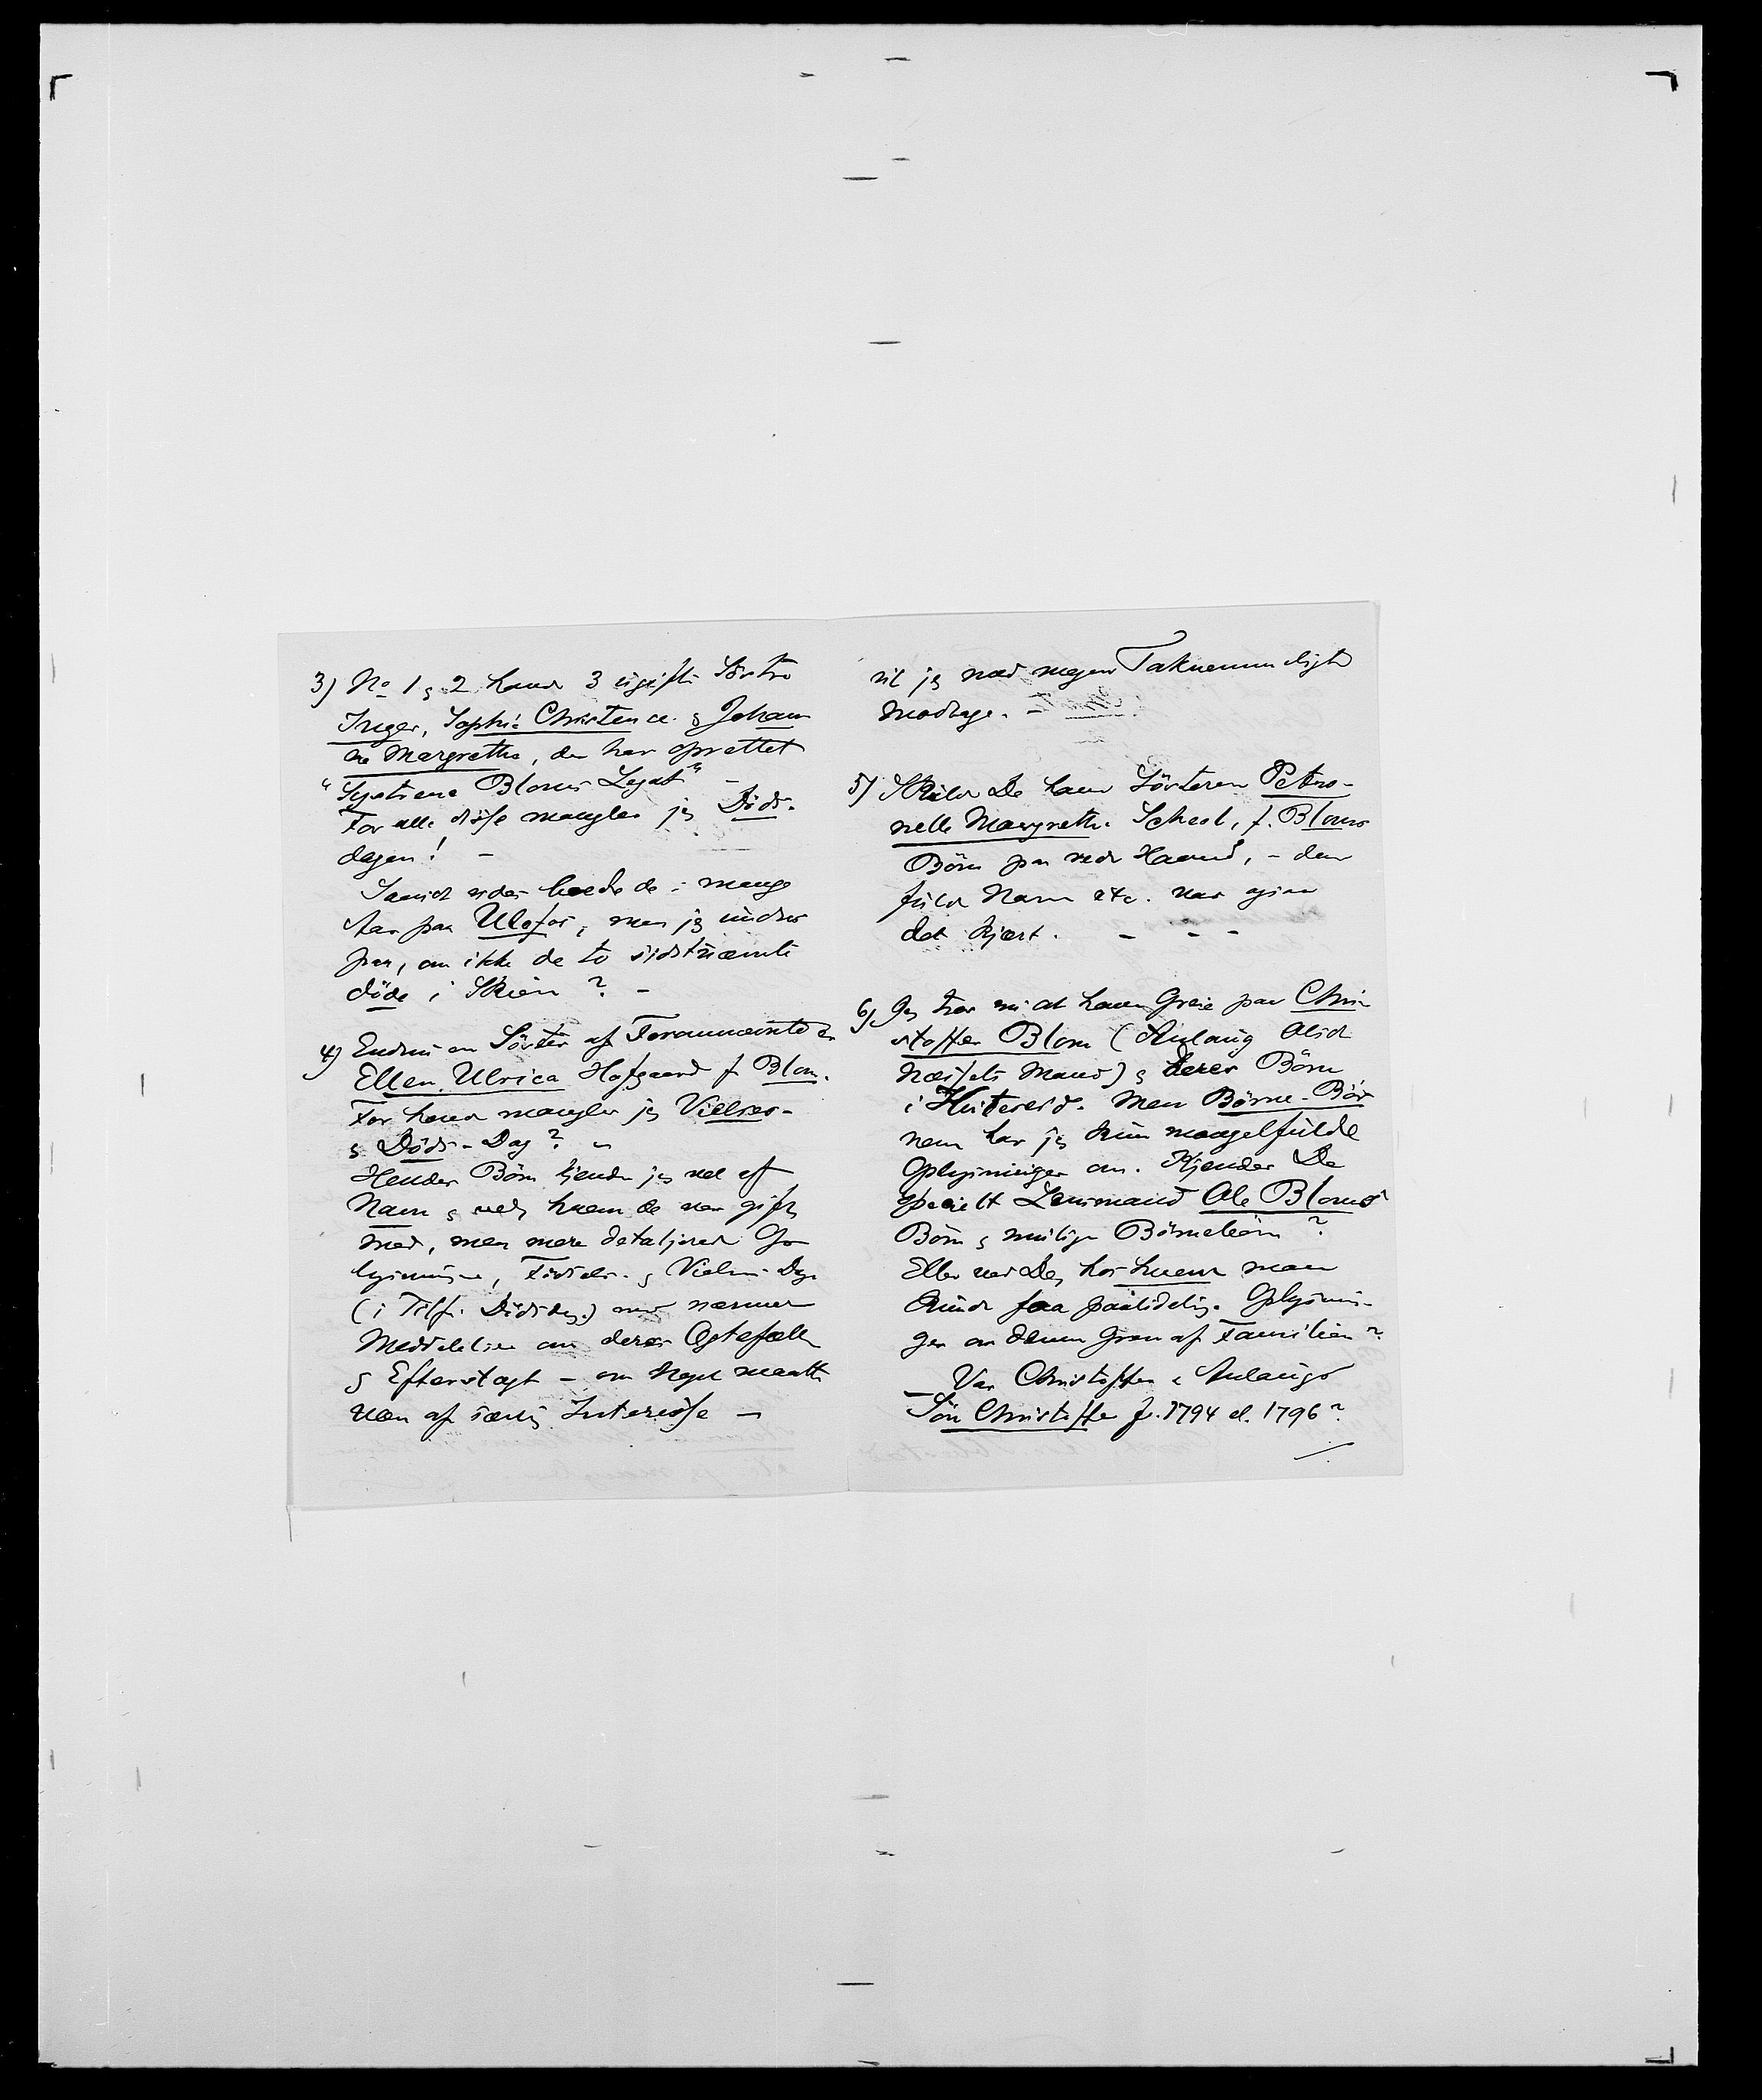 3) No 1 & 2 havde 3 ugifte Söstre
Inger, Sophie Christence & Johan
ne Margrethe, der har oprettet
"Systrene Bloms Legat" -
For alle disse mangler jeg Döds-
dagen! -
Saavidt vides boede de i mange
Aar paa Ulefos, men jeg undres
paa, om ikke de to sidstnævnte
döde i Skien? -
4) Endnu en Söster af Forannævnte er
Ellen Ulrica Hofgaard f Blom.
For hende mangler jeg Vielses-
& Döds-Dag?
Hendes Börn kjender jeg vel af
Navn & ved, hvem de var gift
med, men mere detaljerede Op-
lysninger, Födsels- & Vielses-Dage
(i Tilf. Dödsdag) med nærmere
Meddelelser om deres Ægtefæller
& Efterslægt - om noget maatte
være af særlig Interesse -
vil jeg med megen Taknemmelighed
modtage. -
5) Skulde De have Sösteren Petro-
nelle Margrethe Scheel, f. Bloms
Börn paa rede Haand, - deres
fulde Navn etc. var ogsaa
det kjært. - - -
6) Jeg tror nu at have Greie paa Chri-
stoffer Blom (Aulaug Alisd.
Næsets Mand) & deres Börn
i Hviteseid. Men Börne-Bör-
nene har jeg kun mangelfulde
Oplysninger om. Kjender De
specielt Lensmand Ole Bloms
Börn & mulige Börnebörn?
Eller ved De, hos hvem man
kunde faa paalidelige Oplysnin-
ger om denne Gren af Familien?
Var Christoffer & Aulaugs
Sön Christoffer f. 1794 el. 1796?